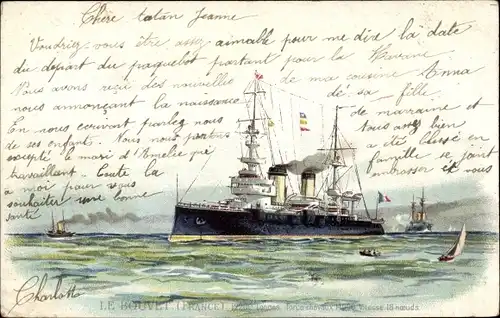 Chère tatan Jeanne
Voudriez vous être assez aimable pour me dire la date
du départ du paquebot partant pour la Havane
Nous avons reçu des nouvelles de ma cousine Anna
nous annonçant la naissance de sa fille.
En nous écrivant parlez nous de marraine et
de ses enfant. Nous nous portons tous bien
excepté le mari d'Amelie qui a été blessé en
travaillant. Toute la famille se joint
a moi pour vous embrasser et vous
souhaiter une bonne
santé
Charlotte
LE BOUVET (FRANCE) tonnes, force chevaux Vitesse 18 nœuds